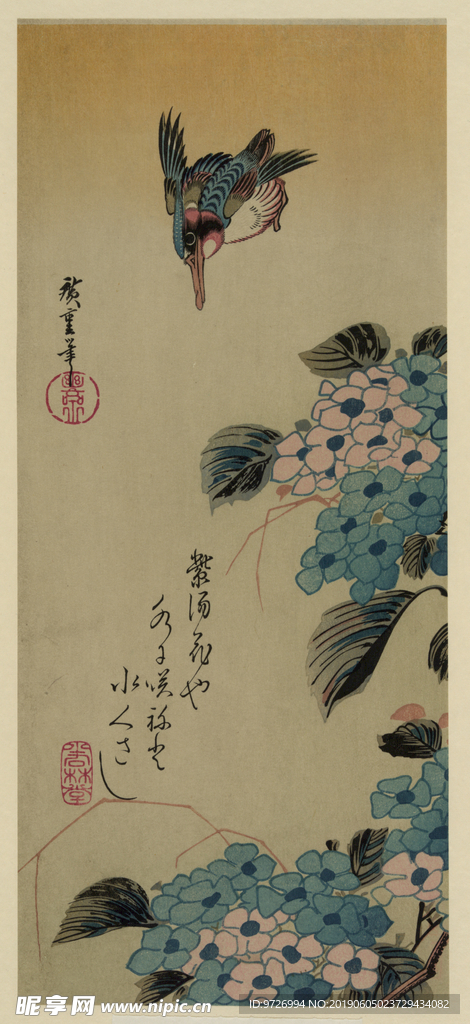 廣重筆
紫陽花や
水に咲ねど
水くさし
昵享网 www.nipic.cn
ID:9726994 NO:20190605023729434082